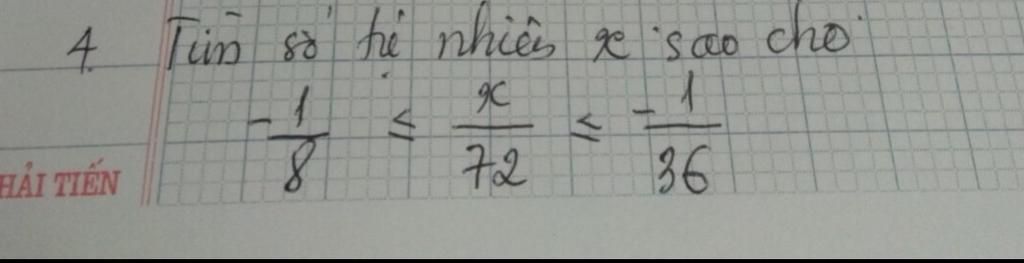 4. Tìm số tự nhiên x sao cho
-1/8 ≤ x/72 ≤ -1/36
HẢI TIẾN